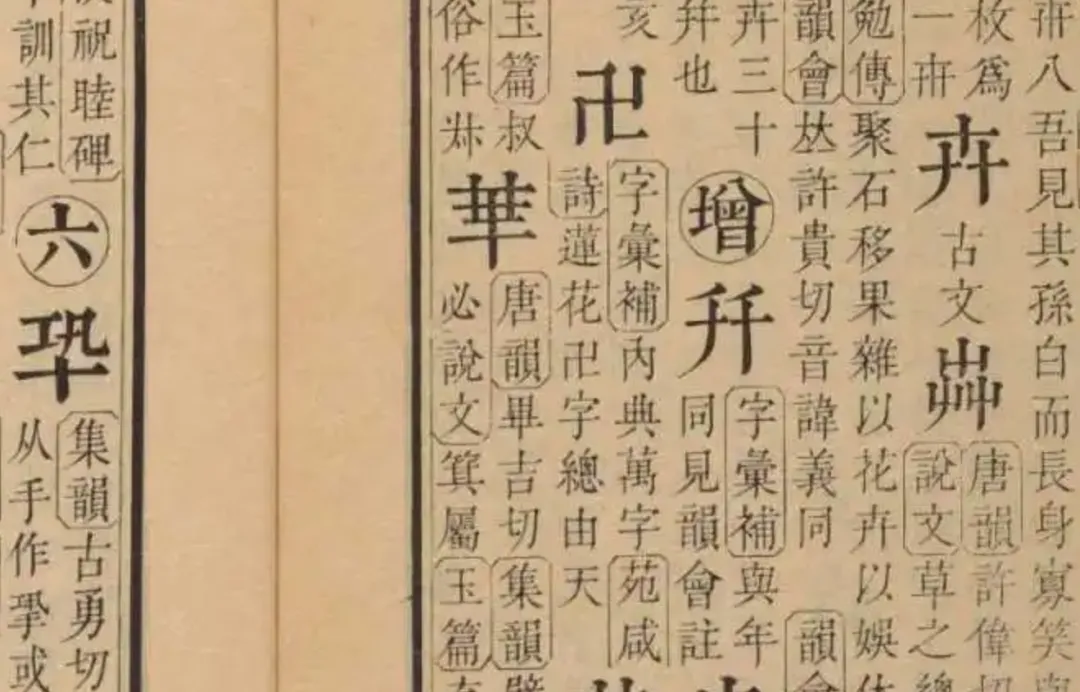 卌八吾見其孫白而長身寡笑與
枚爲
一卌
卉
古文
芔
唐韻許偉切
說文草之總
勉傳聚石移果雜以花卉以娛休
韻會𠀤許貴切音諱義同
韻會
卉三十
也
增
字彙補與年
同見韻會註
亥
卍
字彙補內典萬字苑咸
詩蓮花卍字總由天
玉篇叔
俗作
唐韻畢吉切集韻
必說文箕屬玉篇
祝睦碑
訓其仁
六
集韻古勇切
从手作鞏或